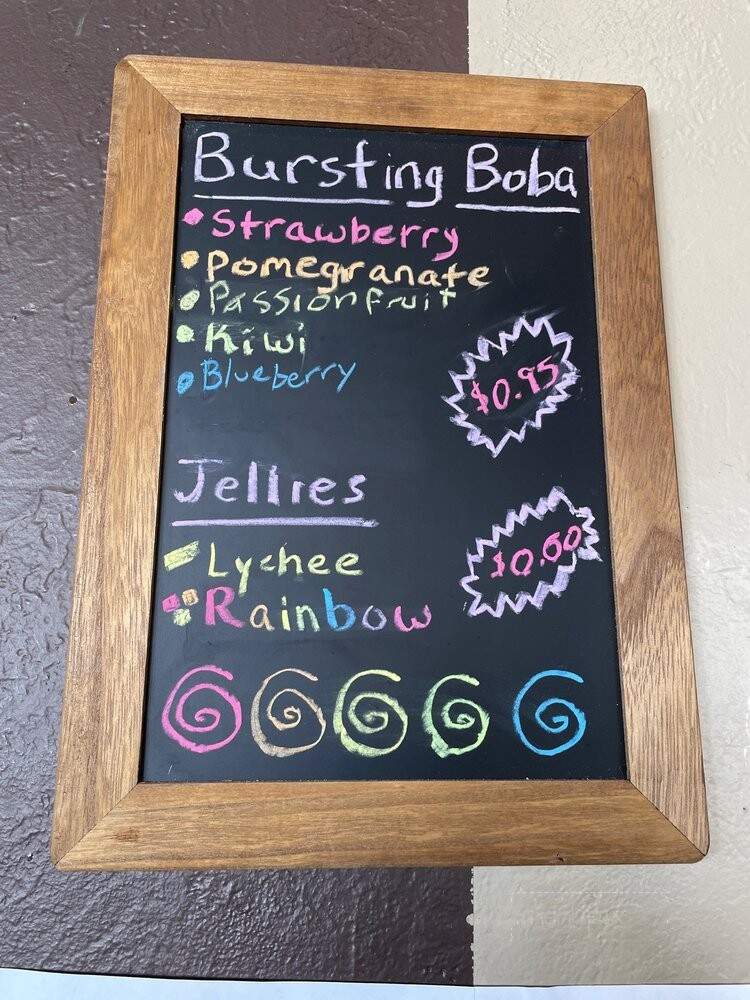 Bursting Boba
Strawberry
Pomegranate
Passionfruit
Kiwi
Blueberry
$0.95
Jellies
Lychee
Rainbow
$0.60